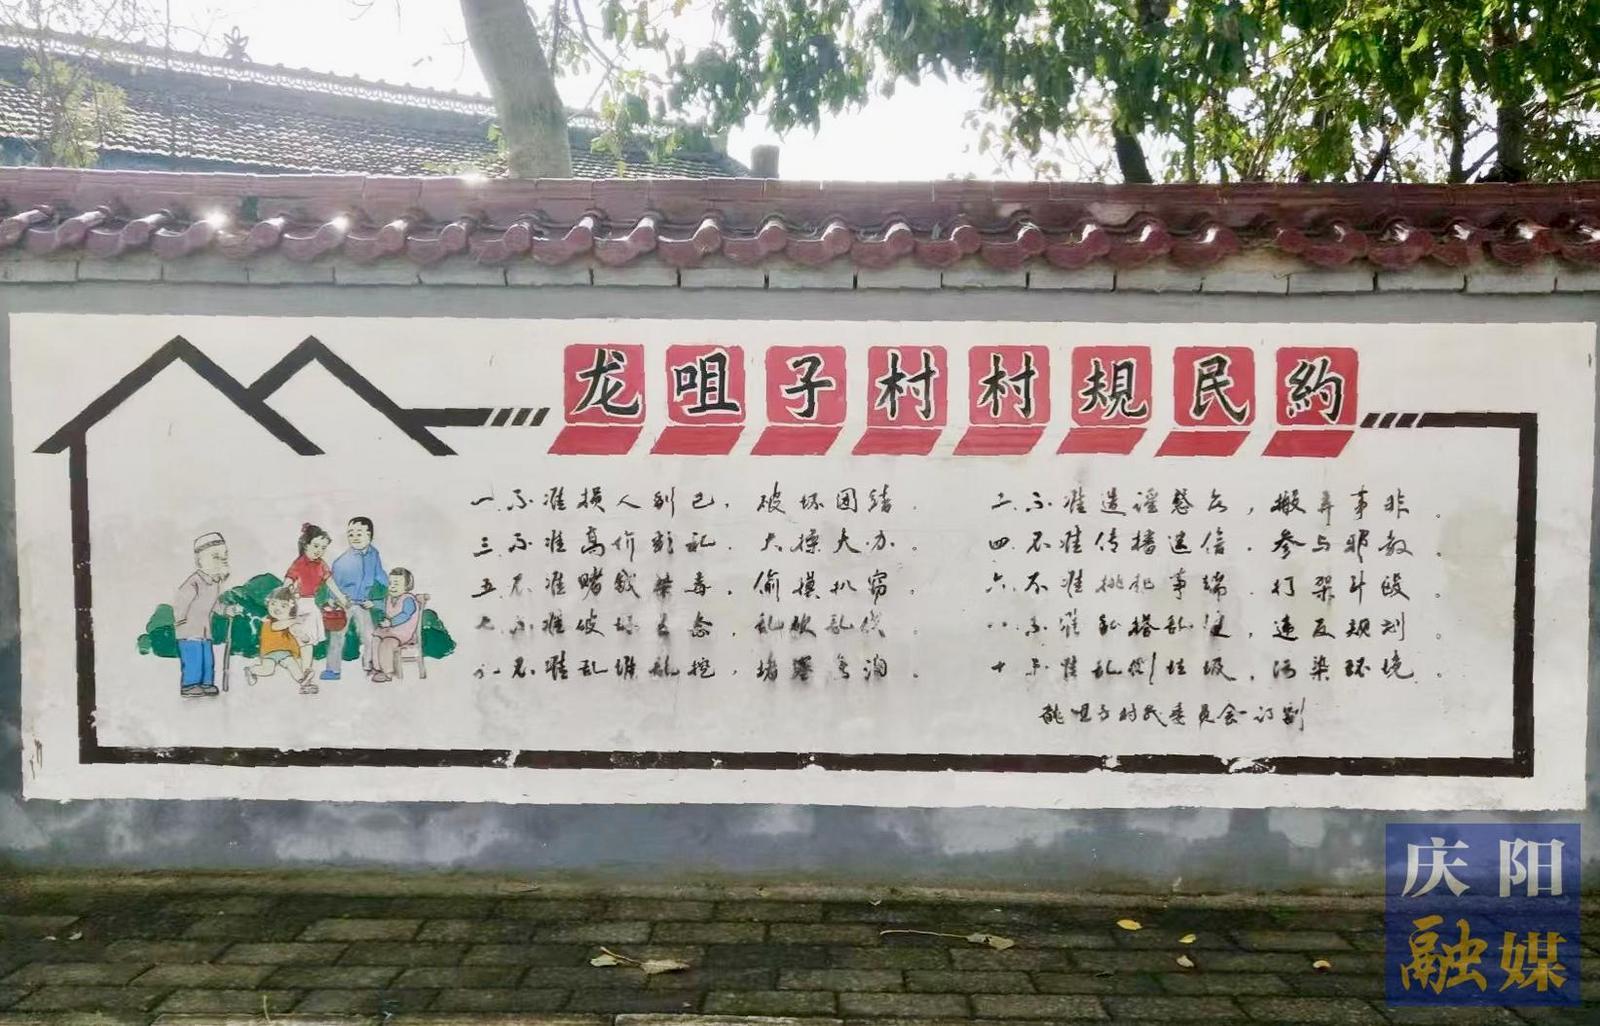 龙咀子村村規民約
一、不准损人利己，破坏团结。
二、不准造谣惑众，搬弄事非。
三、不准高价彩礼，大操大办。
四、不准传播迷信，参与邪教。
五、不准赌钱染毒，偷摸扒窃。
六、不准挑起事端，打架斗殴。
七、不准破坏生态，乱砍乱伐。
八、不准私搭乱建，违反规划。
九、不准乱堆乱挖，堵塞弯沟。
十、不准乱倒垃圾，污染环境。
龙咀子村民委员会订制
庆阳
融媒